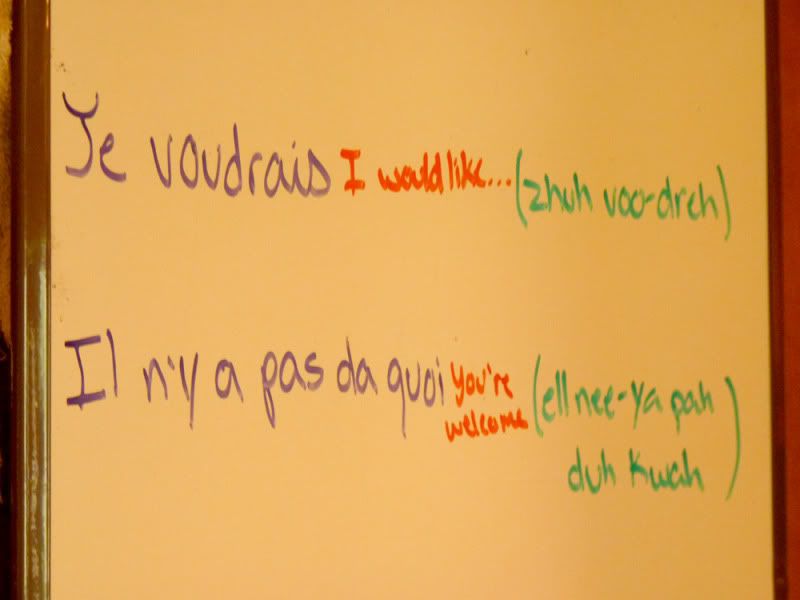 Je voudrais I would like... (zhuh voo-dreh)
Il n'y a pas da quoi you're (ell nee-ya pah
welcome duh kwah)